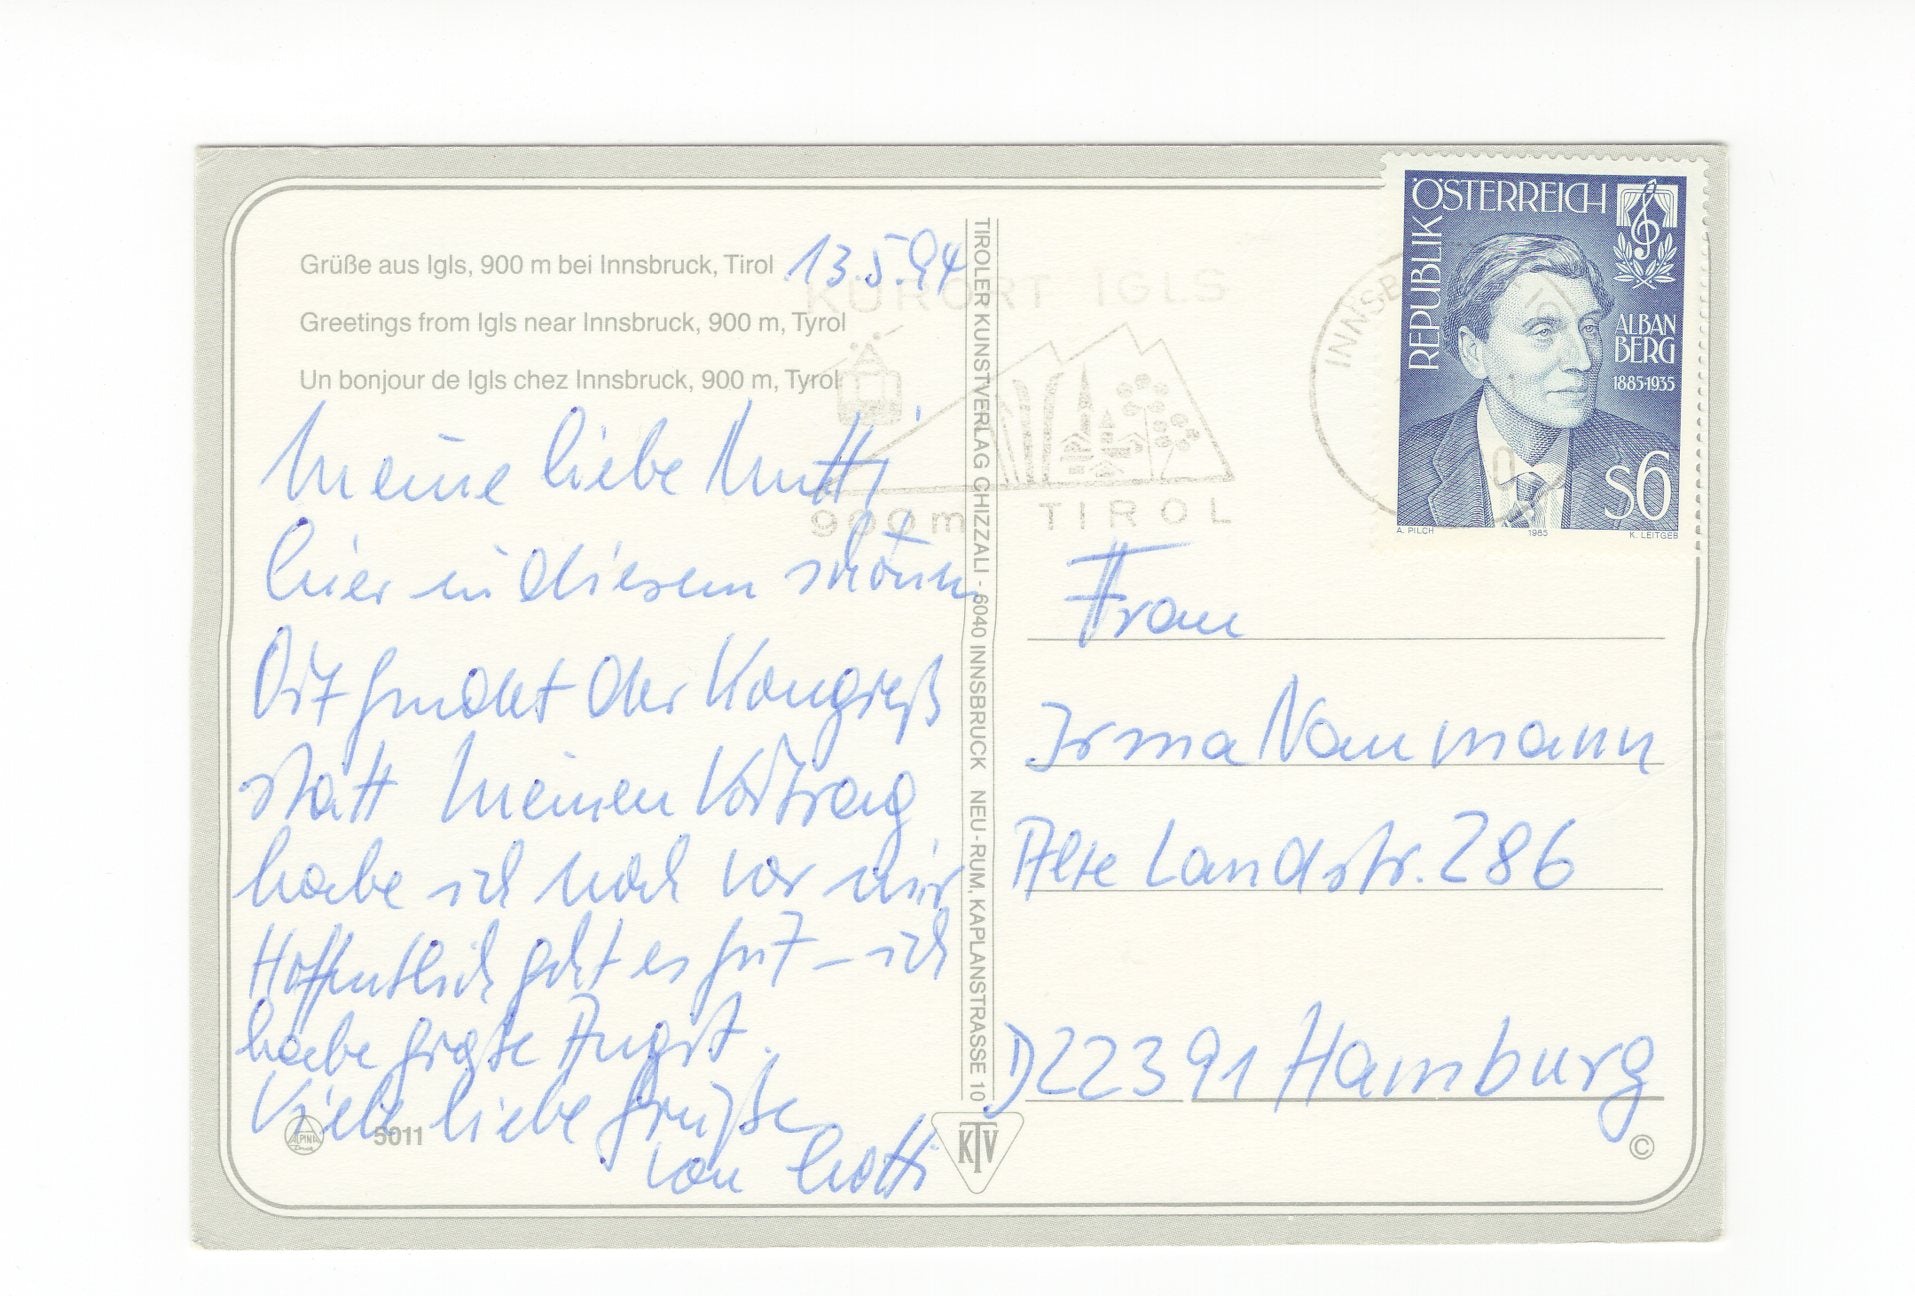 Grüße aus Igls, 900 m bei Innsbruck, Tirol
13.5.94
Greetings from Igls near Innsbruck, 900 m, Tyrol
Un bonjour de Igls chez Innsbruck, 900 m, Tyrol
Meine liebe Mutti
hier in diesem schönen
Ort findet der Kongreß
statt Meinen Vortrag
habe ich noch vor mir
Hoffentlich geht es gut – ich
habe große Angst.
Viele liebe Grüße
von
ALPINA
5011
TIROLER KUNSTVERLAG CHIZZALI - 6040 INNSBRUCK NEU-RUM, KAPLANSTRASSE 10
KTV
KURORT IGLS
900 m TIROL
REPUBLIK ÖSTERREICH
ALBAN
BERG
1885-1935
S6
A. PILCH 1985 K. LEITGEB
Frau
Irma Naumann
Alte Landstr. 286
D22391 Hamburg
©